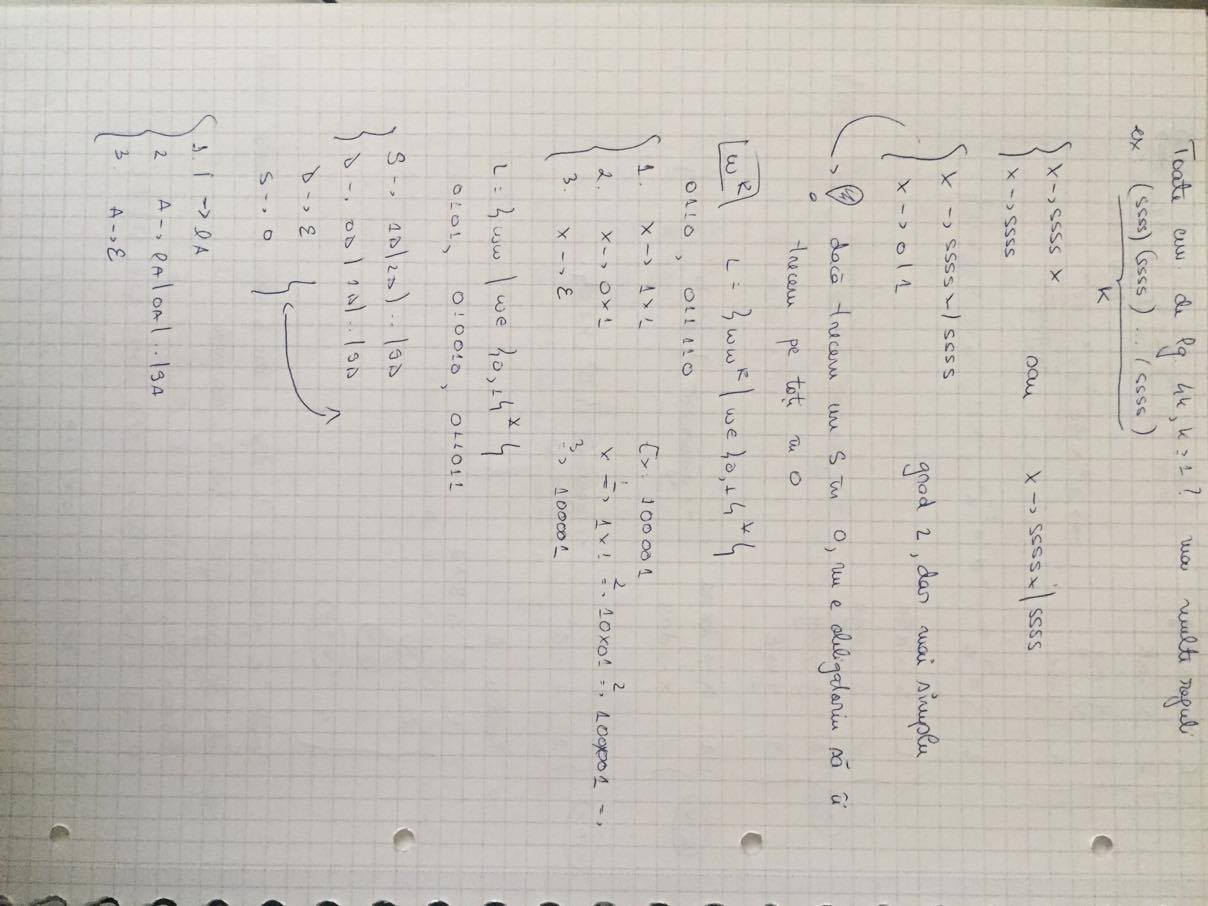 Toate cuv. de lg 4k, k≥1? mai multe reguli
ex. (ssss)(ssss)...(ssss)
k
{ x → ssss x
x → ssss
sau x → ssss x | ssss
{ x → ssss x | ssss
x → 0 | 1
grad 2, dar mai simplu
→ dacă trecem un S în 0, nu e obligatoriu să îi
trecem pe toți în 0
w^R L = {ww^R | w ∈ {0,1}*}
0110, 011110
{ 1. x → 1x1
2. x → 0x1
3. x → ε
Ex: 100001
x ⇒ 1x1 ⇒ 10x01 ⇒ 100x001 ⇒
⇒ 100001
L = {ww | w ∈ {0,1}*}
0101, 010010, 011011
{ S → 1D | 2D | .. | 9D
D → 0D | 1D | .. | 9D
D → ε
S → 0
{ 1.
2 A → lA | 0A | .. | 9A
3. A → ε